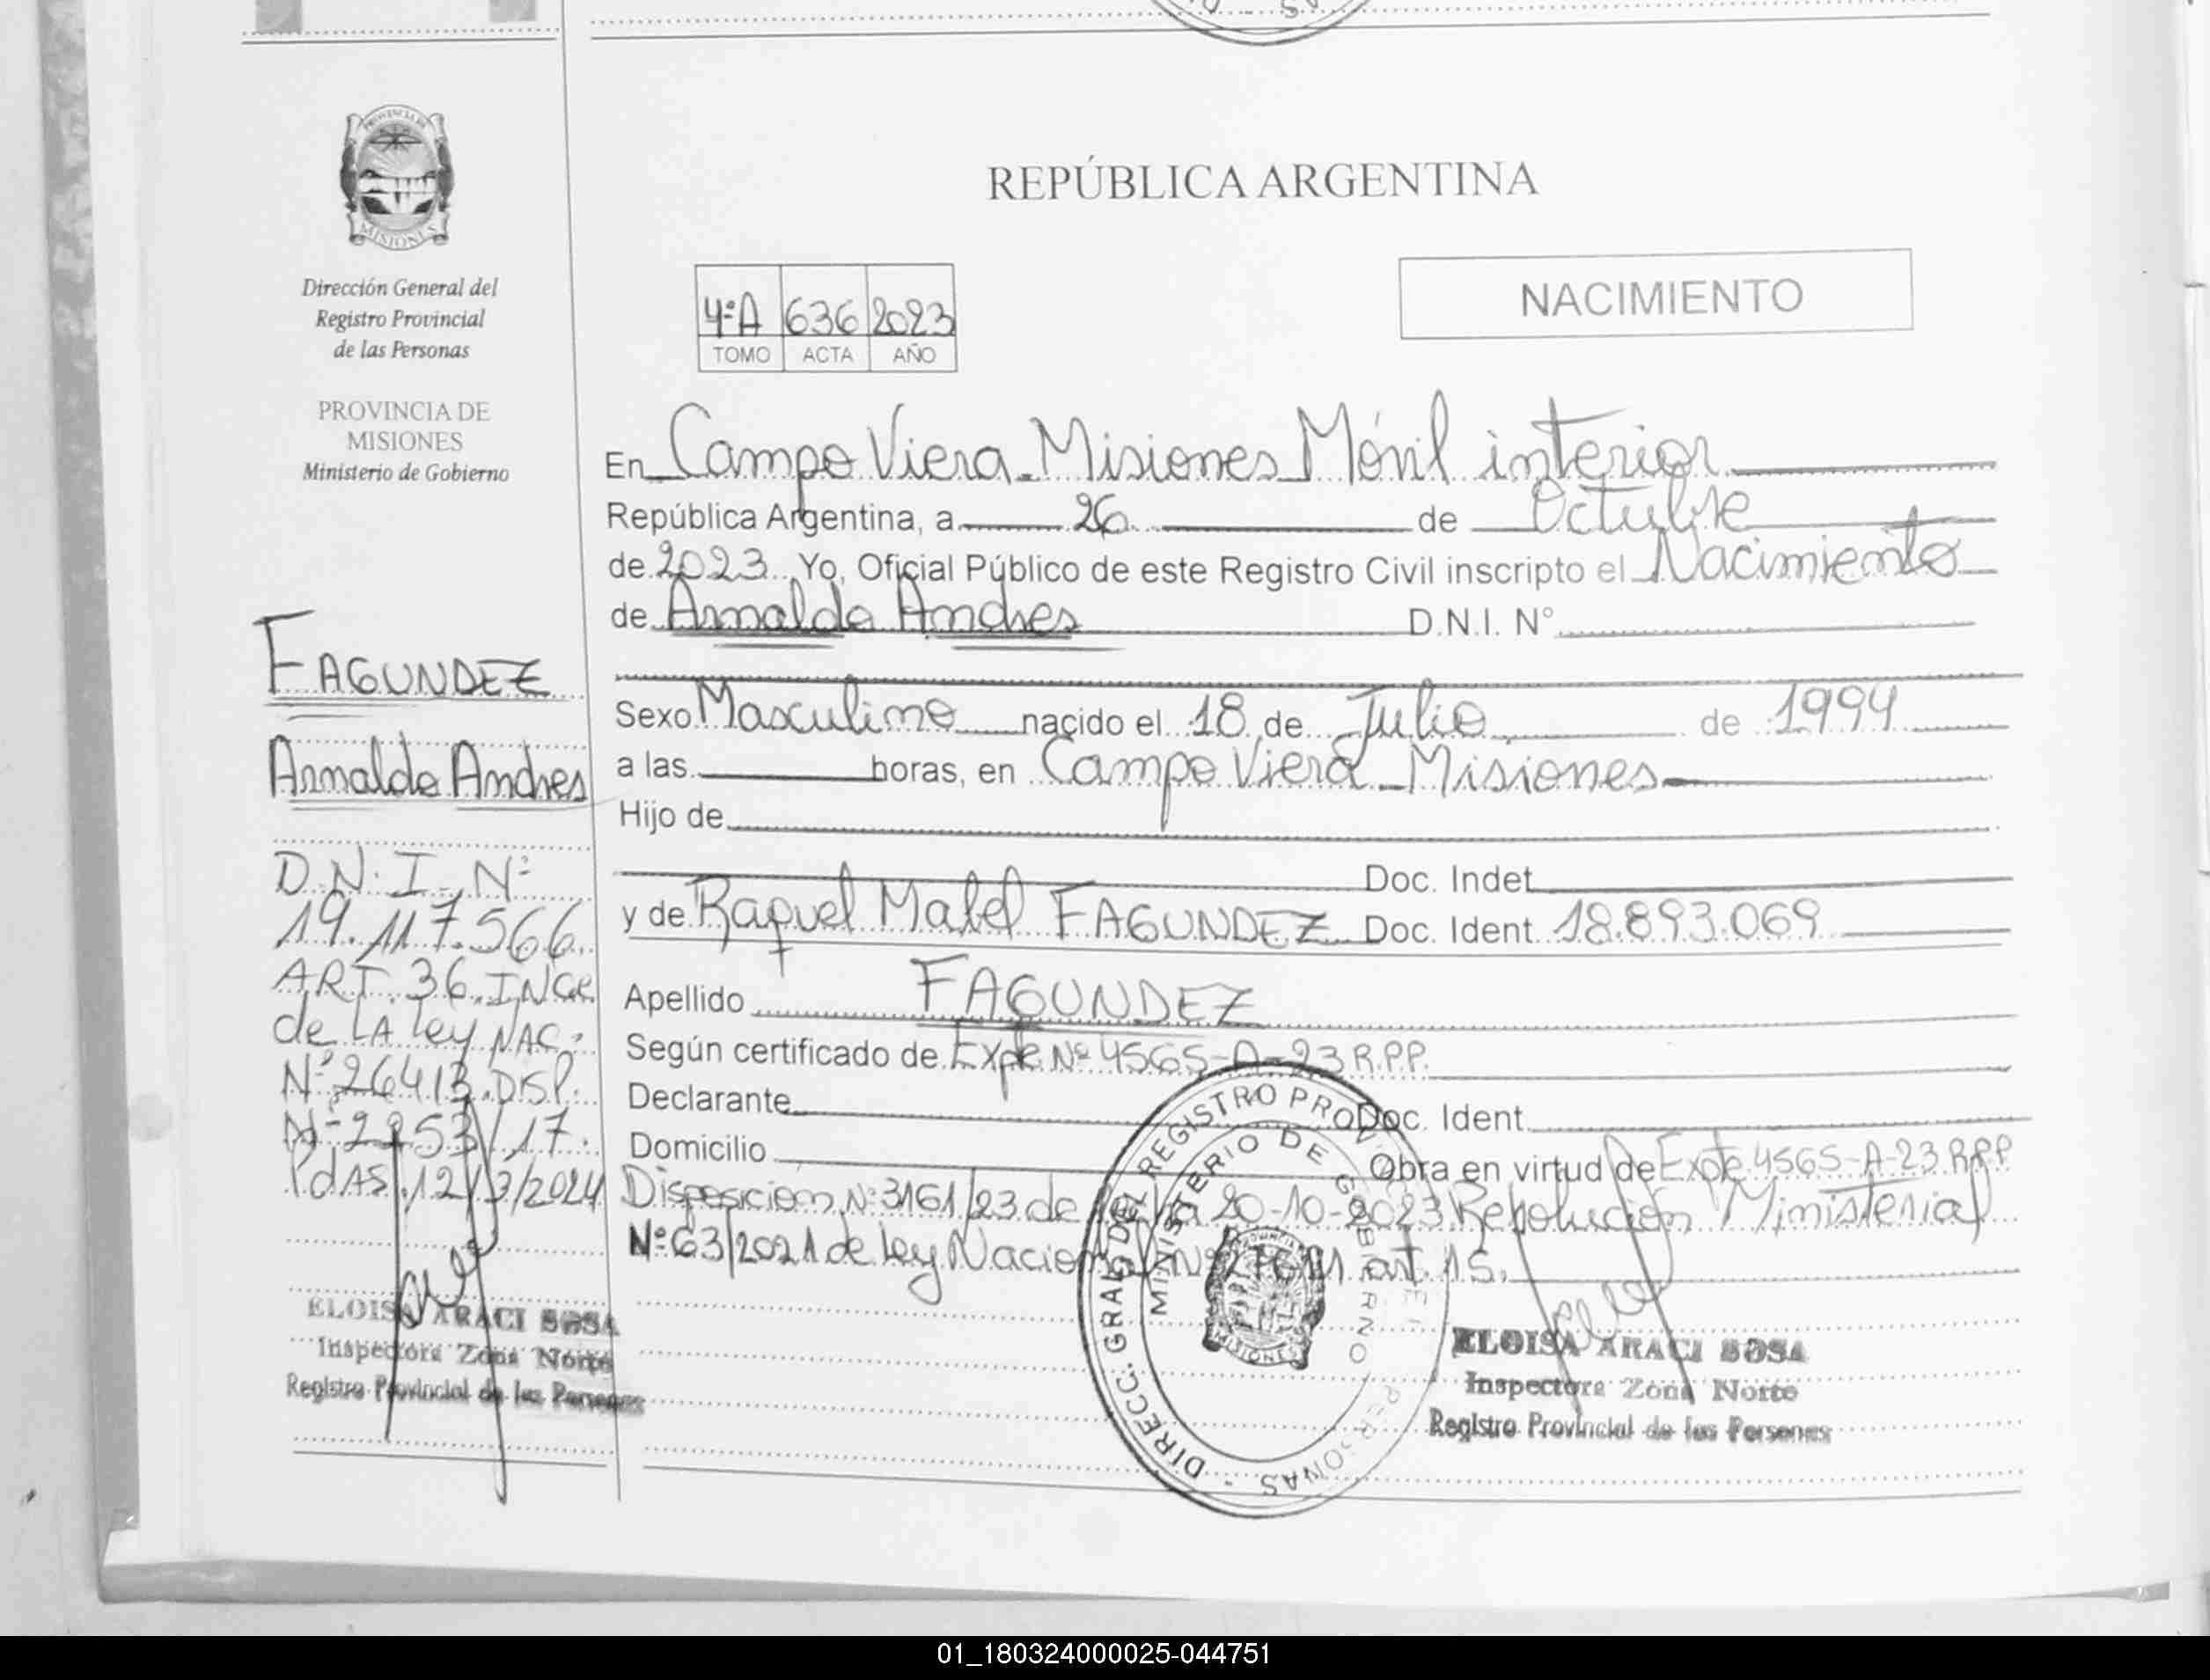 PROVINCIA DE
MISIONES
Dirección General del
Registro Provincial
de las Personas
PROVINCIA DE
MISIONES
Ministerio de Gobierno
FAGUNDEZ
Arnaldo Andres
D.N.I. Nº
19.117.566
ART. 36. INC.
de LA Ley NAC.
Nº 26413. DISP.
/17.
PdAS, 12/3/2024
ELOISA ARACI SOSA
Inspectora Zona Norte
Registro Provincial de las Personas
REPÚBLICA ARGENTINA
4ºA 636 2023
TOMO ACTA AÑO
NACIMIENTO
En Campo Viera - Misiones Móvil interior
República Argentina, a 26 de Octubre
de 2023 Yo, Oficial Público de este Registro Civil inscripto el Nacimiento
de Arnaldo Andres D.N.I. N°
Sexo Masculino nacido el 18 de Julio de 1994
a las horas, en Campo Viera - Misiones
Hijo de
Doc. Indet
y de Raquel Mabel FAGUNDEZ Doc. Ident. 18.893.069
Apellido FAGUNDEZ
Según certificado de Expte Nº 4565-A-23 R.P.P.
Declarante Doc. Ident.
Domicilio Obra en virtud de Expte 4565-A-23 RPP
Disposicion Nº 3161/23 de fecha 20-10-2023 Resolución Ministerial
Nº 63/2021 de Ley Nacional Nº art. 15.
DIRECC. GRAL. DEL REGISTRO PERSONAS
MINISTERIO DE GOBIERNO
MISIONES
ELOISA ARACI SOSA
Inspectora Zona Norte
Registro Provincial de las Personas
01_180324000025-044751